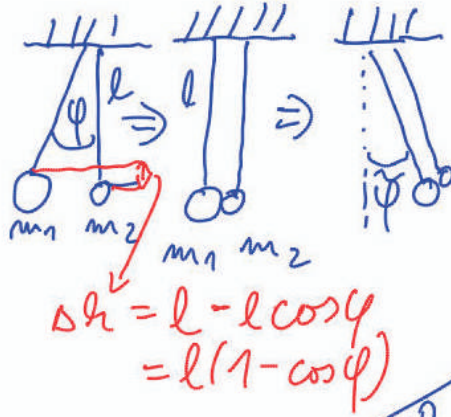 φ l ⇒ l ⇒ φ̃
m1 m2 m1 m2
Δh = l - l cosφ
= l(1 - cosφ)